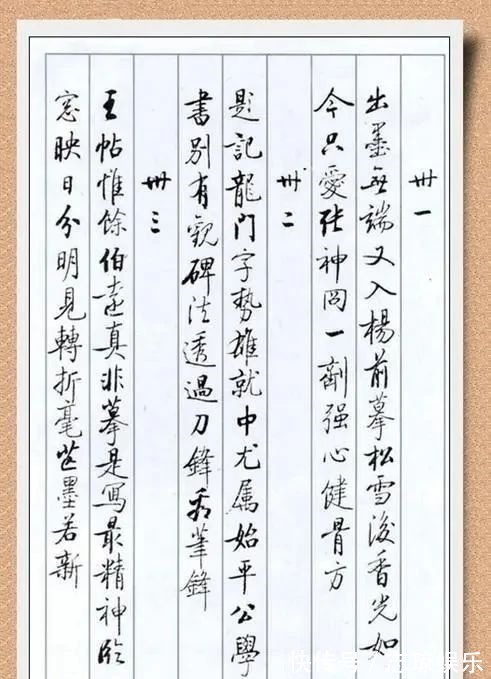 卅一
出墨無端又入楊前摹松雪後香光如
今只愛張神冏一劑强心健骨方
卅二
題記龍門字勢雄就中尤属始平公學
書別有觀碑法透過刀鋒看筆鋒
卅三
王帖惟餘伯遠真非摹是寫最精神臨
窓映日分明見轉折毫芒墨若新